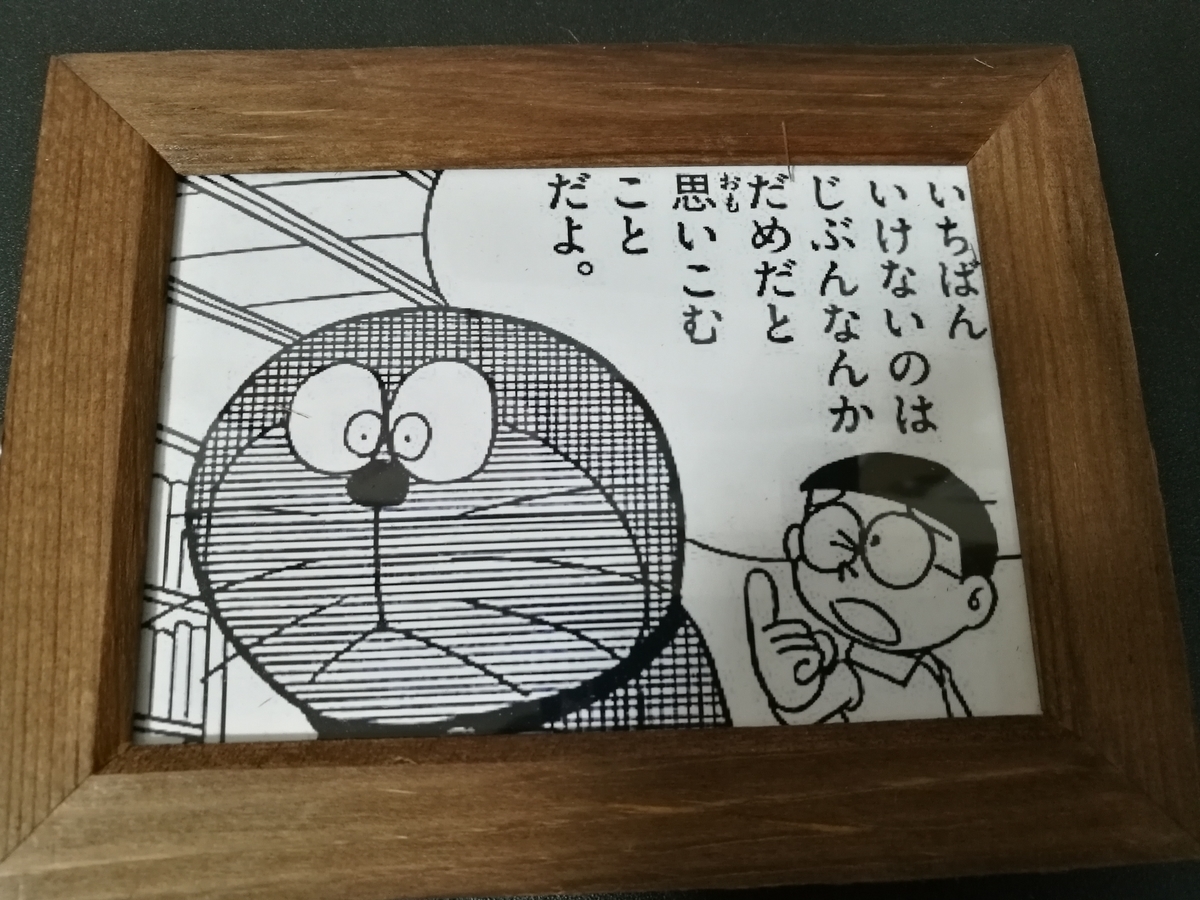 いちばん
いけないのは
じぶんなんか
だめだと
思いこむ
おも
こと
だよ。